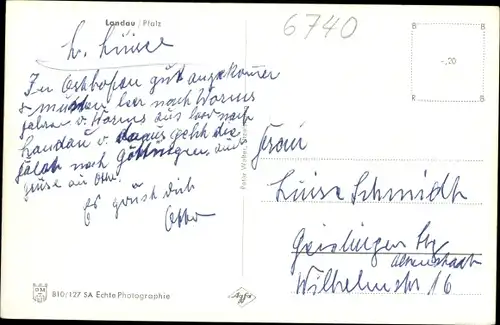 Landau / Pfalz
6740
B B
-,20
R B
L. Luise
In Osthofen gut angekommen
& mußten leer nach Worms
fahren v. Worms aus leer nach
Landau v. da aus geht die
nach Göttingen, auch
Grüße an Otto.
Es grüßt dich
Otto
Frau
Luise Schmidt
Geislingen Stg
Altenstadt
Wilhelmstr 16
B10/127 SA Echte Photographie
Agfa